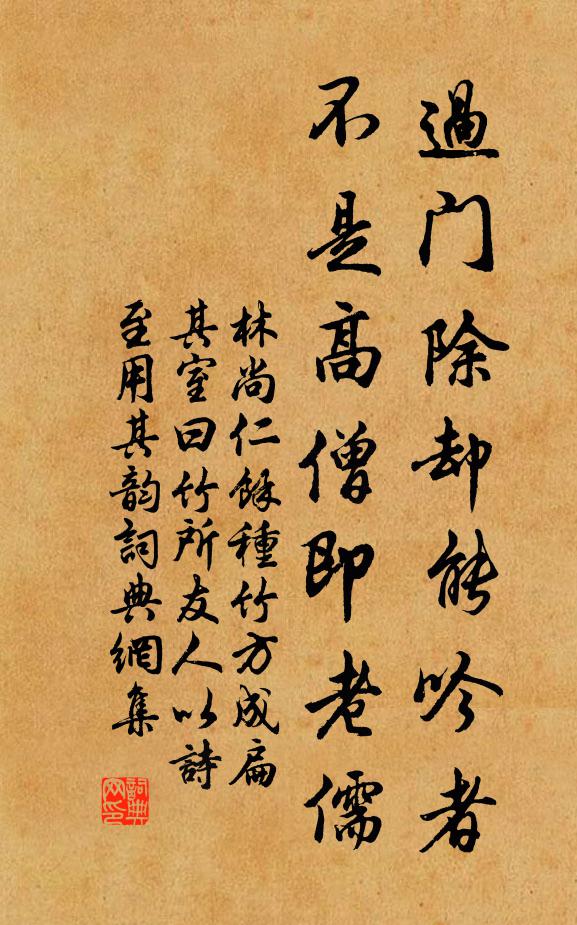 過門除却能吟者
不是高僧即老儒
林尚仁餘種竹方成扁
其室曰竹所友人以詩
至用其韵詞典網集
詞典网印